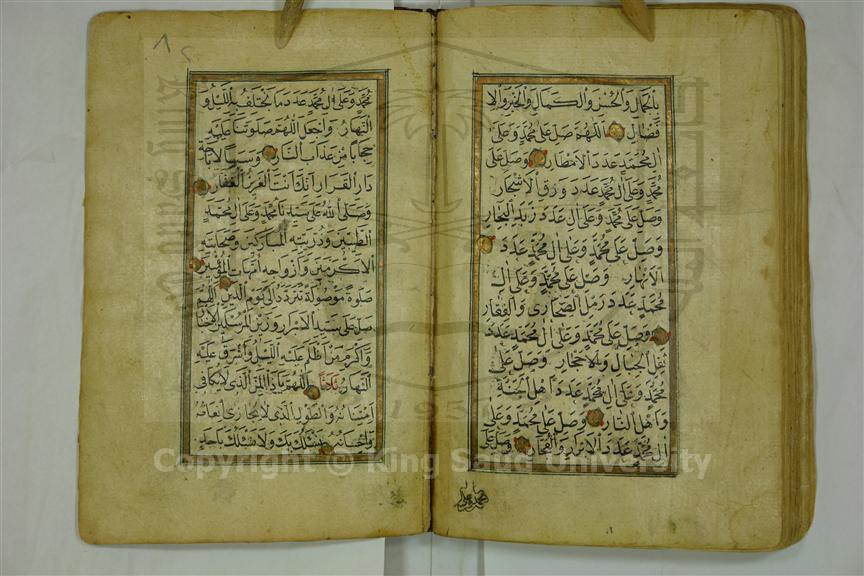 بالجمال والحسن والكمال والخير والا
فضال اللهم صل على محمد وعلى
ال محمد عدد الامطار وصل على
محمد وعلى ال محمد عدد ورق الاشجار
وصل على محمد وعلى ال عدد زبد البحار
وصل على محمد وعلى ال محمد عدد
الانهار وصل على محمد وعلى ال
محمد عدد رمل الصحارى والقفار
وصل على محمد وعلى ال محمد عدد
ثقل الجبال والاحجار وصل على
محمد وعلى ال محمد عدد اهل الجنة
واهل النار وصل على محمد وعلى
ال محمد عدد الابرار والفجار وصل على
محمد وعلى
محمد وعلى ال محمد عدد ما يختلف به الليل و
النهار واجعل اللهم صلوتنا عليه
حجابا من عذاب النار وسببا لاباحة
دار القرار انك انت العزيز الغفار
وصلى الله على سيدنا محمد وعلى ال محمد
الطيبين وذريته المباركين وصحابته
الاكرمين وازواجه امهات المؤمنين
صلوة موصولة تتردد الى يوم الدين اللهم
صل على سيد الابرار وزين المرسلين الاخيار
واكرم من اظلم عليه الليل واشرق عليه
النهار ثلاثا اللهم ياذا المن الذى لا يكافى
امتنانه والطول الذى لا يجازى انعامه
واحسانه نسئلك بك ولا نسئلك باحد
Copyright © King Saud University
1957